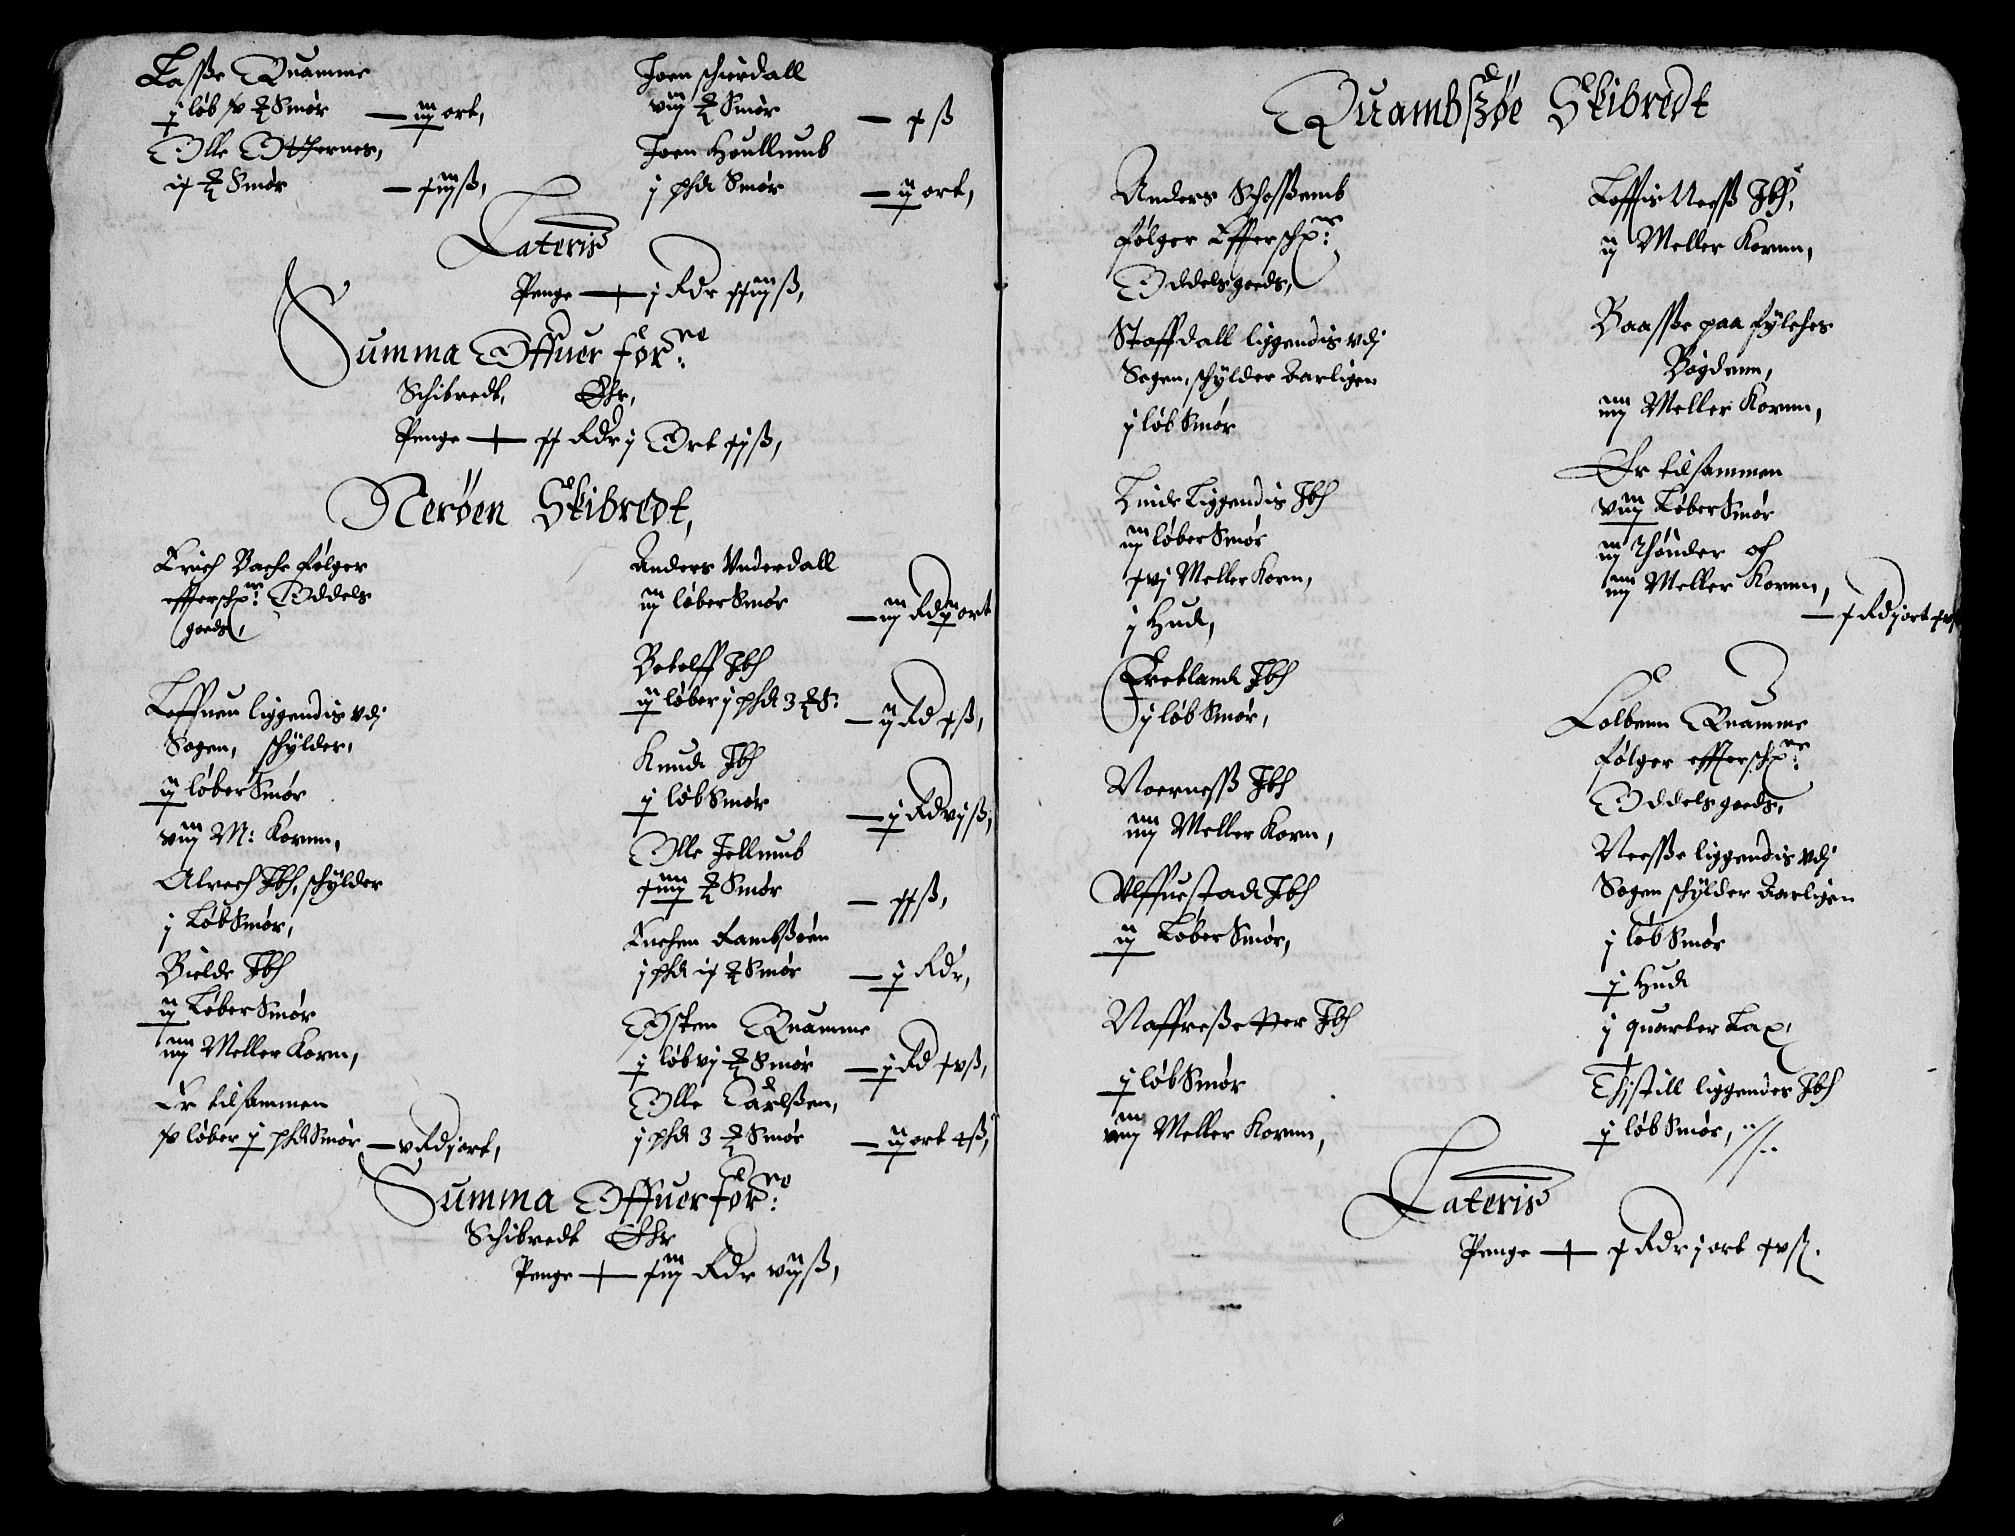 Lasße Quamme
j løb xv ℔ Smør — iij ort,
Olle Otthernes,
ix ℔ Smør — xiiij ß,
Joen schierdall
viij ℔ Smør — x ß
Joen Houllumb
j phd Smør — ij ort,
Lateris
Penge — j Rdr xxiiij ß,
Summa Offuer for:ne
Schibredt, Ehr,
Penge — xx Rdr j Ort xij ß,
Nerøen Skibredt,
Erich Bache følger
effterschr:ne Oddels
goeds,
Loffuen liggendis vdj
Sogen, schylder,
ij løber Smør
viij M: Kornn,
Alrech Jbh, schylder
j Løb Smør,
Bielde Jbh
ij Løber Smør
iiij Meller Korn,
Er tilsammen
xv løber j phd Smør — v Rd j ort,
Anders Vnderdall
iij løber Smør — iij Rd ij ort
Betolff Jbh
ij løber j phd 3 ℔ S: — ij Rd x ß,
Knud Jbh
j løb Smør — j Rd vj ß,
Olle Jellumb
xiiij ℔ Smør — xx ß,
Enchen Rambsøen
j phd ix ℔ Smør — j Rdr,
Østen Quamme
j løb vj ℔ Smør — j Rd xv ß,
Olle Carlßen,
j phd 3 ℔ Smør — ij ort 4 ß,
Summa Offuer for:ne
Schibredt Ehr
Penge — xiij Rdr viij ß,
Quambszøe Skibredt
Anders Schosßemb
følger Effterschr:ne
Oddelsgoeds,
Stoffdall liggendis vdj
Sogen, schylder Aarligen
j løb Smør
Linde Liggendis Jbh
iij løber Smør
xvj Meller Korn,
j Hud,
Fretland Jbh
j løb Smør,
Noerneß Jbh
iiij Meller Korn,
Vlffuestad Jbh
ij Løber Smør,
Naffreßetter Jbh
j løb Smør
viij Meller Kornn,
Loffvis Neß Jbh,
ij Meller Kornn,
Baasße paa fylches
Bøgdenn,
iiij Meller Kornn,
Er tilsammen
viij Løber Smør
iij Thønder och
iiij Meller Kornn, — x Rd j ort xv ß
Colbenn Quamme
følger effterschr:ne
Oddelsgoeds,
Neesße liggendis vdj
Sogen schylder Aarligen
j løb Smør
j Hud
j quarter Lax,
Thistill liggendes Jbh
j løb Smør,
Lateris
Penge — x Rdr j ort xv ß.